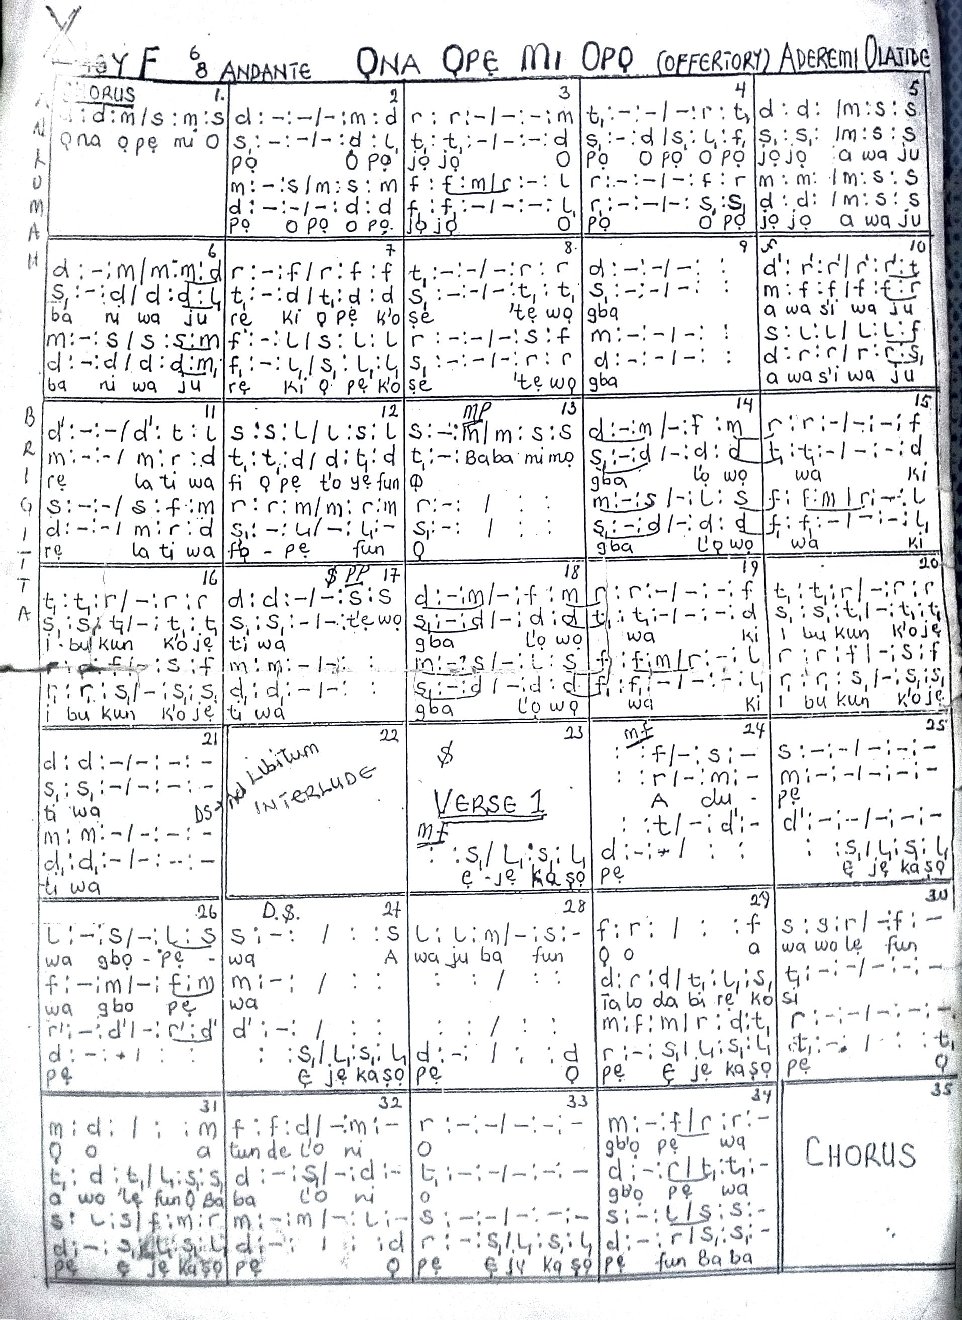 Y F 6/8 ANDANTE ỌNA ỌPẸ MI OPỌ (OFFERTORY) ADEREMI OLAJIDE
CHORUS 1.
: d : m / s : m : s
Ọna ọpẹ mi O
2
d : - : - / - : m : d
s, : - : - / - : d : l,
pọ O pọ
m : - : s / m : s : m
d : - : - / - : d : d
pọ O pọ O pọ
3
r : r : - / - : - : m
t, : t, : - / - : - : d
jọ jọ O
f : f : m / r : - : l
f, : f, : - / - : - : l,
jọ jọ O
4
t, : - : - / - : r : t,
s, : - : d / s, : l, : f,
pọ O pọ O pọ
r : - : - / - : f : r
r : - : - / - : s, : s,
pọ O pọ
5
d : d : / m : s : s
s, : s, : / m : s : s
jọ jọ a wa ju
m : m : / m : s : s
d : d : / m : s : s
jọ jọ a wa ju
6
d : - : m / m : m : m d
s, : - : d / d : d : d l,
ba ni wa ju
m : - : s / s : s : s m
d : - : d / d : d : d m,
ba ni wa ju
7
r : - : f / r : f : f
t, : - : d / t, : d : d
rẹ ki ọ pẹ k'o
f : - : l / s : l : l
f, : - : l, / s, : l, : l,
rẹ ki ọ pẹ k'o
8
t, : - : - / - : r : r
s, : - : - / - : t, : t,
ṣe 'tẹ wọ
r : - : - / - : s : f
s, : - : - / - : r : r
ṣe 'tẹ wọ
9
d : - : - / - : :
s, : - : - / - : :
gba
m : - : - / - : :
d : - : - / - : :
gba
10
d' : r' : r' / r' : r' : r' t
m : f : f / f : f : f r
a wa s'i wa ju
s : l : l / l : l : l f
d : r : r / r : r : r s,
a wa s'i wa ju
11
d' : - : - / d' : t : l
m : - : - / m : r : d
rẹ la ti wa
s : - : - / s : f : m
d : - : - / m : r : d
rẹ la ti wa
12
s : s : l / l : s : l
t, : t, : d / d : t, : d
fi ọ pẹ t'o yẹ fun
r : r : m / m : r : m
s, : - : l, / - : l, : -
fọ - pẹ fun
13 mp
s : - : m / m : s : s
t, : - : Baba mi mọ
Ọ
r : - : / : :
s, : - : / : :
Ọ
14
d : - : m / - : f : m
s, : - : d / - : d : d
gba l'ọ wọ
m : - : s / - : l : s
s, : - : d / - : d : d
gba l'ọ wọ
15
r : r : - / - : - : f
t, : t, : - / - : - : d
wa ki
f : f : m / r : - : l
f, : f, : - / - : - : l,
wa ki
16
t, : t, : r / - : r : r
s, : s, : t, / - : t, : t,
i - bu kun k'o jẹ
r : r : f / - : s : f
r, : r, : s, / - : s, : s,
i bu kun k'o jẹ
$ pp 17
d : d : - / - : s : s
s, : s, : - / - : t'ẹ wọ
ti wa
m : m : - / - : :
d, : d, : - / - : :
ti wa
18
d : - : m / - : f : m
s, : - : d / - : d : d
gba l'ọ wọ
m : - : s / - : l : s
s, : - : d / - : d : d
gba l'ọ wọ
19
r : r : - / - : - : f
t, : t, : - / - : - : d
wa ki
f : f : m / r : - : l
f, : f, : - / - : - : l,
wa ki
20
t, : t, : r / - : r : r
s, : s, : t, / - : t, : t,
i bu kun k'o jẹ
r : r : f / - : s : f
r, : r, : s, / - : s, : s,
i bu kun k'o jẹ
21
d : d : - / - : - : -
s, : s, : - / - : - : -
ti wa DS
m : m : - / - : - : -
d, : d, : - / - : - : -
ti wa
22
Ad Libitum
INTERLUDE
23
$
VERSE 1
mf
: : s, / l, : s, : l,
ẹ - jẹ ka sọ
mf 24
: : f / - : s : -
: : r / - : m : -
A du -
: : t / - : d' : -
d : - : + / : :
pẹ
25
s : - : - / - : - : -
m : - : - / - : - : -
pẹ
d' : - : - / - : - : -
: : s, / l, : s, : l,
Ẹ jẹ ka sọ
26
l : - : s / - : l : s
wa gbọ - pẹ -
f : - : m / - : f : m
wa gbọ pẹ
r' : - : d' / - : r' : d'
d : - : + / : :
pẹ
D.S. 27
s : - : / : : s
wa A
m : - : / : :
wa
d' : - : / : :
: : s, / l, : s, : l,
Ẹ jẹ ka sọ
28
l : l : m / - : s : -
wa ju ba fun
: : / : :
: : / : :
d : - : / : : d
pẹ Ọ
29
f : r : / : : f
Ọ o a
d : r : d / t, : l, : s,
ta lo da bi rẹ ko
m : f : m / r : d : t,
r : - : s, / l, : s, : l,
pẹ Ẹ jẹ ka sọ
30
s : s : r / - : f : -
wa wo lẹ fun
t, : - : - / - : - : -
si
r : - : - / - : - : -
t, : - : / : : t,
pẹ Ọ
31
m : d : / : : m
Ọ o a
t, : d : t, / l, : s, : s,
a wo 'lẹ fun Ọ Ba
s : l : s / f : m : r
d : - : s, / l, : s, : l,
pẹ ẹ jẹ ka sọ
32
f : f : d / - : m : -
tun de l'o ni
d : - : s, / - : d : -
ba l'o ni
m : - : m / - : l : -
d : - : / : : d
pẹ Ọ
33
r : - : - / - : - : -
O
t, : - : - / - : - : -
o
s : - : - / - : - : -
r : - : s, / l, : s, : l,
pẹ Ẹ jẹ ka sọ
34
m : - : f / r : r : -
gb'ọ pẹ wa
d : - : r / t, : t, : -
gb'ọ pẹ wa
s : - : l / s : s : -
d : - : r / s, : s, : -
pẹ fun Ba ba
35
CHORUS
B
R
I
G
I
T
T
A